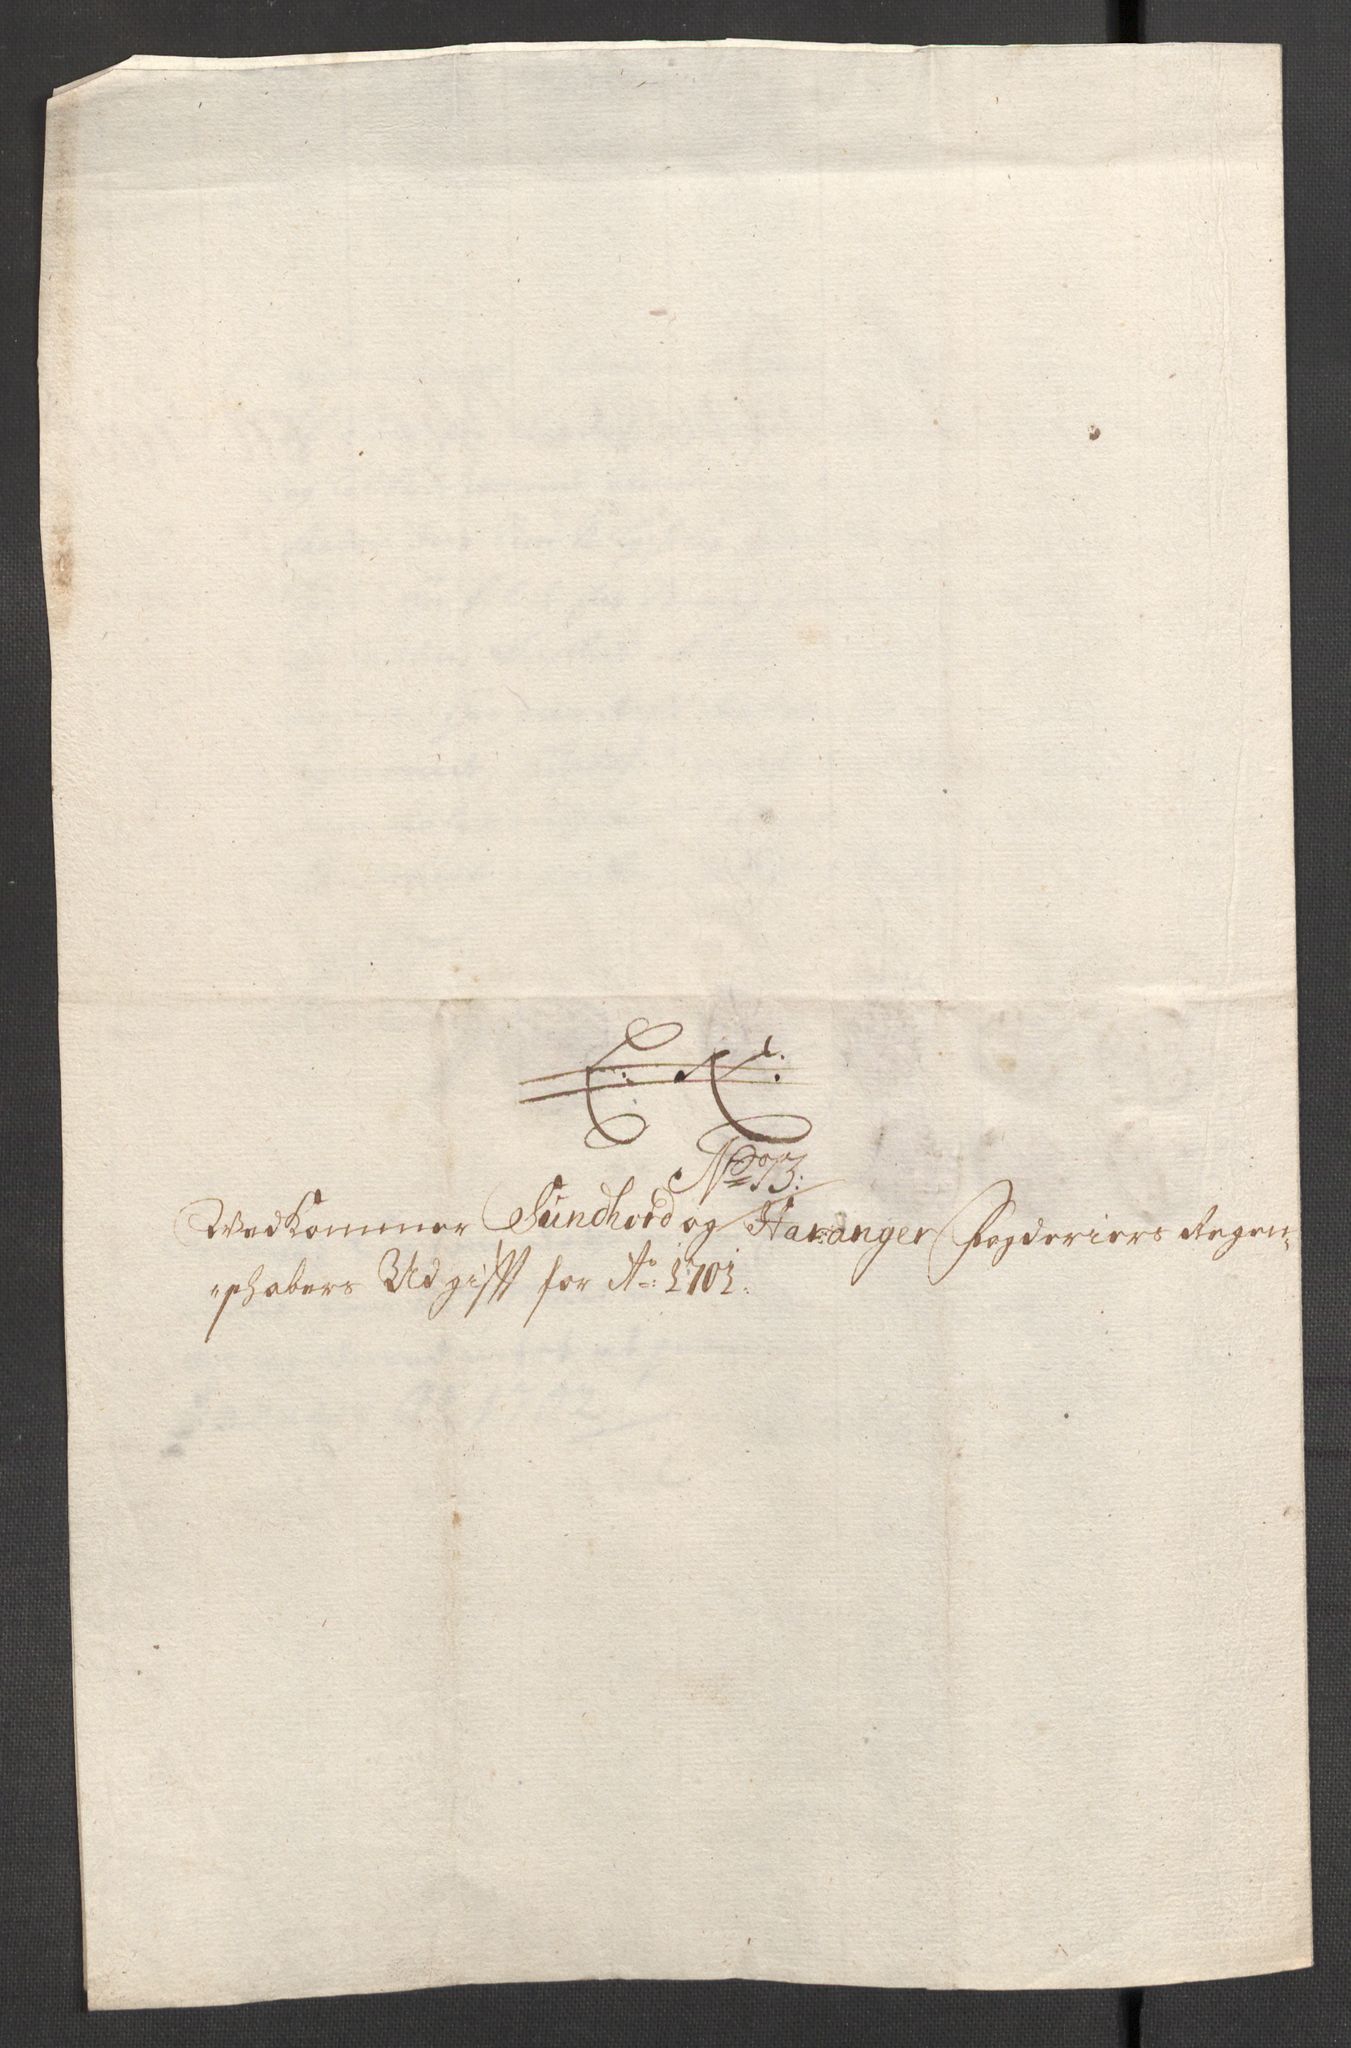 No 73:
Wedkommer Sundhord og Haranger Fogderiers Regen-
schabers Udgifft for Ao: 1701.